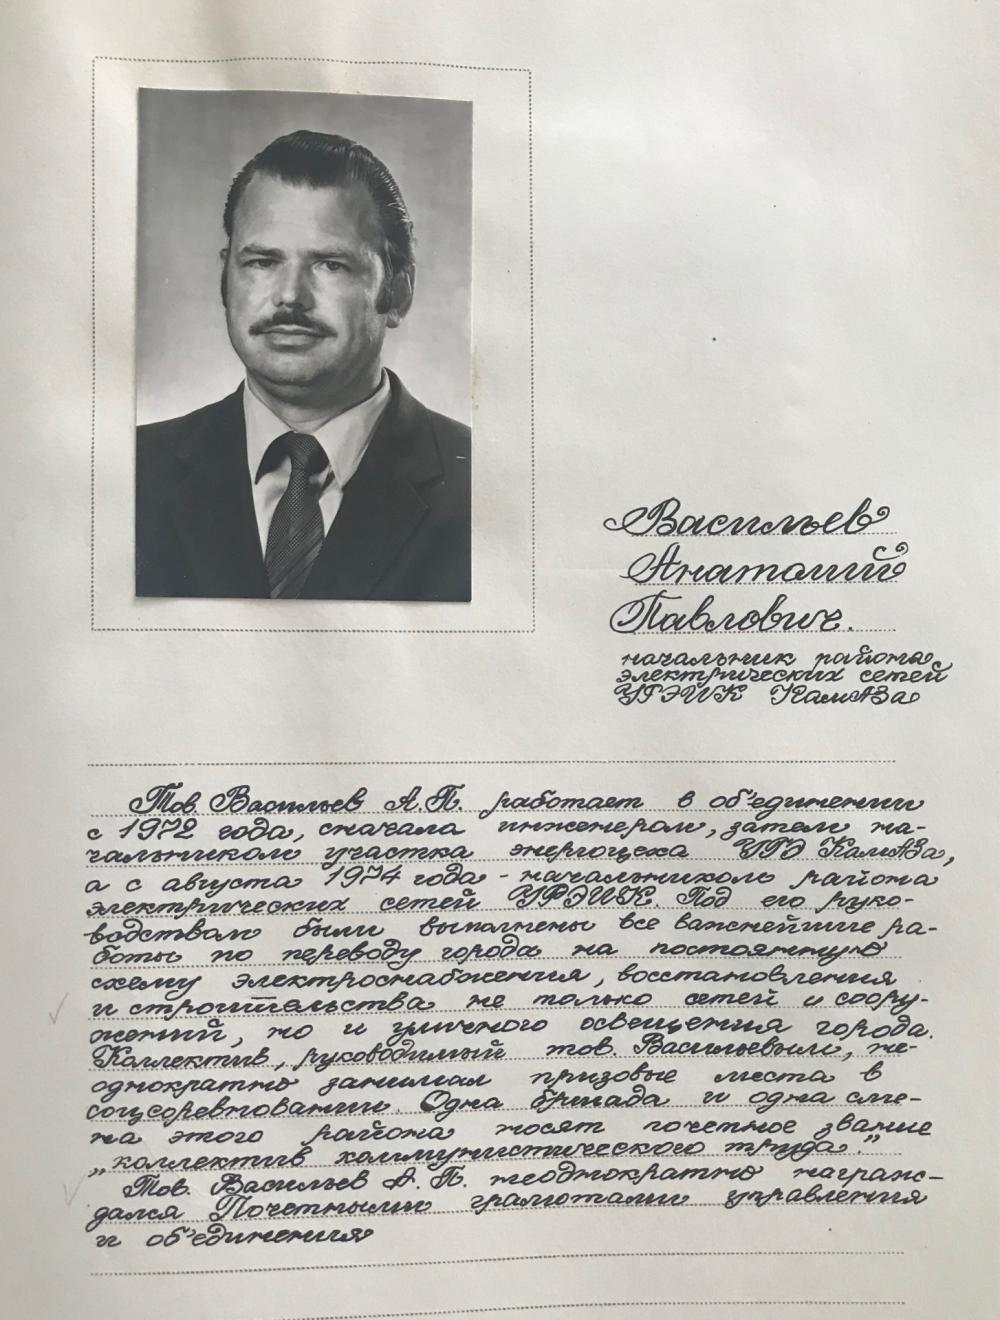 Васильев
Анатолий
Павлович.
начальник района
электрических сетей
УГЭИК КамАЗа
Тов. Васильев А.П. работает в об'единении
с 1972 года, сначала инженером, затем на-
чальником участка энергоцеха УГЭ КамАЗа,
а с августа 1974 года - начальником района
электрических сетей УГЭИК. Под его руко-
водством были выполнены все важнейшие ра-
боты по переводу города на постоянную
схему электроснабжения, восстановления
и строительства не только сетей и соору-
жений, но и уличного освещения города.
Коллектив, руководимый тов. Васильевым, не-
однократно занимал призовые места в
соцсоревновании. Одна бригада и одна сме-
на этого района носят почетное звание
„коллектив коммунистического труда."
Тов. Васильев А.П. неоднократно награж-
дался Почетными грамотами управления
и об'единения